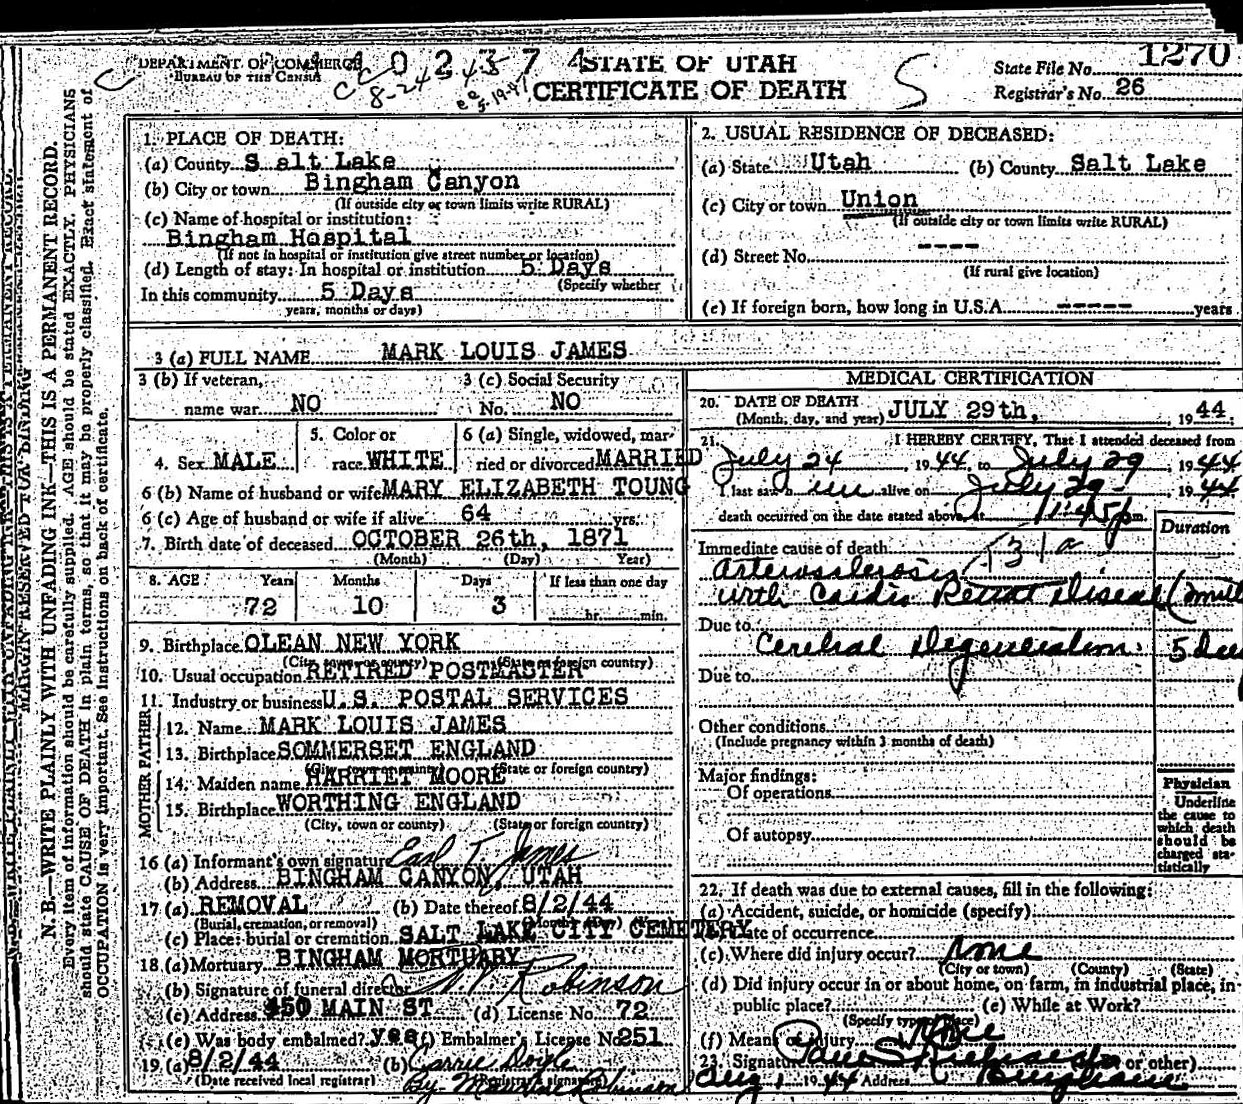 DEPARTMENT OF COMMERCE
BUREAU OF THE CENSUS
0 2 3 7 4
C 8-24-45
5-19-47
STATE OF UTAH
CERTIFICATE OF DEATH
S
State File No. 1270
Registrar's No. 26
N. B.—WRITE PLAINLY WITH UNFADING INK—THIS IS A PERMANENT RECORD.
Every item of information should be carefully supplied. AGE should be stated EXACTLY. PHYSICIANS
should state CAUSE OF DEATH in plain terms, so that it may be properly classified. Exact statement of
OCCUPATION is very important. See instructions on back of certificate.
MARGIN RESERVED FOR BINDING
1. PLACE OF DEATH:
(a) County S alt Lake
(b) City or town Bingham Canyon
(If outside city or town limits write RURAL)
(c) Name of hospital or institution:
Bingham Hospital
(If not in hospital or institution give street number or location)
(d) Length of stay: In hospital or institution 5 Days
(Specify whether
In this community 5 Days
years, months or days)
2. USUAL RESIDENCE OF DECEASED:
(a) State Utah (b) County Salt Lake
(c) City or town Union
(If outside city or town limits write RURAL)
(d) Street No. ----
(If rural give location)
(e) If foreign born, how long in U.S.A. ----- years
3 (a) FULL NAME MARK LOUIS JAMES
3 (b) If veteran, 3 (c) Social Security
name war NO No. NO
4. Sex MALE 5. Color or race WHITE 6 (a) Single, widowed, mar-
ried or divorced MARRIED
6 (b) Name of husband or wife MARY ELIZABETH TOUNG
6 (c) Age of husband or wife if alive 64 yrs.
7. Birth date of deceased OCTOBER 26th, 1871
(Month) (Day) Year)
8. AGE Years Months Days If less than one day
72 10 3 hr. min.
9. Birthplace OLEAN NEW YORK
(City, town or county) (State or foreign country)
10. Usual occupation RETIRED POSTMASTER
11. Industry or business U.S. POSTAL SERVICES
FATHER
12. Name MARK LOUIS JAMES
13. Birthplace SOMMERSET ENGLAND
(City, town or county) (State or foreign country)
MOTHER
14. Maiden name HARRIET MOORE
15. Birthplace WORTHING ENGLAND
(City, town or county) (State or foreign country)
16 (a) Informant's own signature Earl T. James
(b) Address BINGHAM CANYON, UTAH
17 (a) REMOVAL (b) Date thereof 8/2/44
(Burial, cremation, or removal)
(c) Place: burial or cremation SALT LAKE CITY CEMETERY
18 (a) Mortuary BINGHAM MORTUARY
(b) Signature of funeral director Robinson
(c) Address 450 MAIN ST (d) License No. 72
(e) Was body embalmed? yes (f) Embalmer's License No 251
19 (a) 8/2/44 (b) Carrie Doyle
(Date received local registrar) (Registrar's signature)
MEDICAL CERTIFICATION
20. DATE OF DEATH
(Month, day, and year) JULY 29th, 1944.
21. I HEREBY CERTIFY, That I attended deceased from
July 24, 1944, to July 29, 1944
I last saw h im alive on July 29, 1944
death occurred on the date stated above, at 11:45 pm.
Duration
Immediate cause of death 131a
Arterosclerosis
with Cardio
Due to
Cerebral Degeneration. 5
Due to
Other conditions
(Include pregnancy within 3 months of death)
Major findings:
Of operations
Of autopsy
Physician
Underline
the cause to
which death
should be
charged sta-
tistically
22. If death was due to external causes, fill in the following:
(a) Accident, suicide, or homicide (specify)
(b) Date of occurrence
(c) Where did injury occur? None
(City or town) (County) (State)
(d) Did injury occur in or about home, on farm, in industrial place, in
public place? (e) While at Work?
(Specify type of place)
(f) Means of injury None
23. Signature Paul S. Richards or other)
Aug 1 1944 Address Bingham